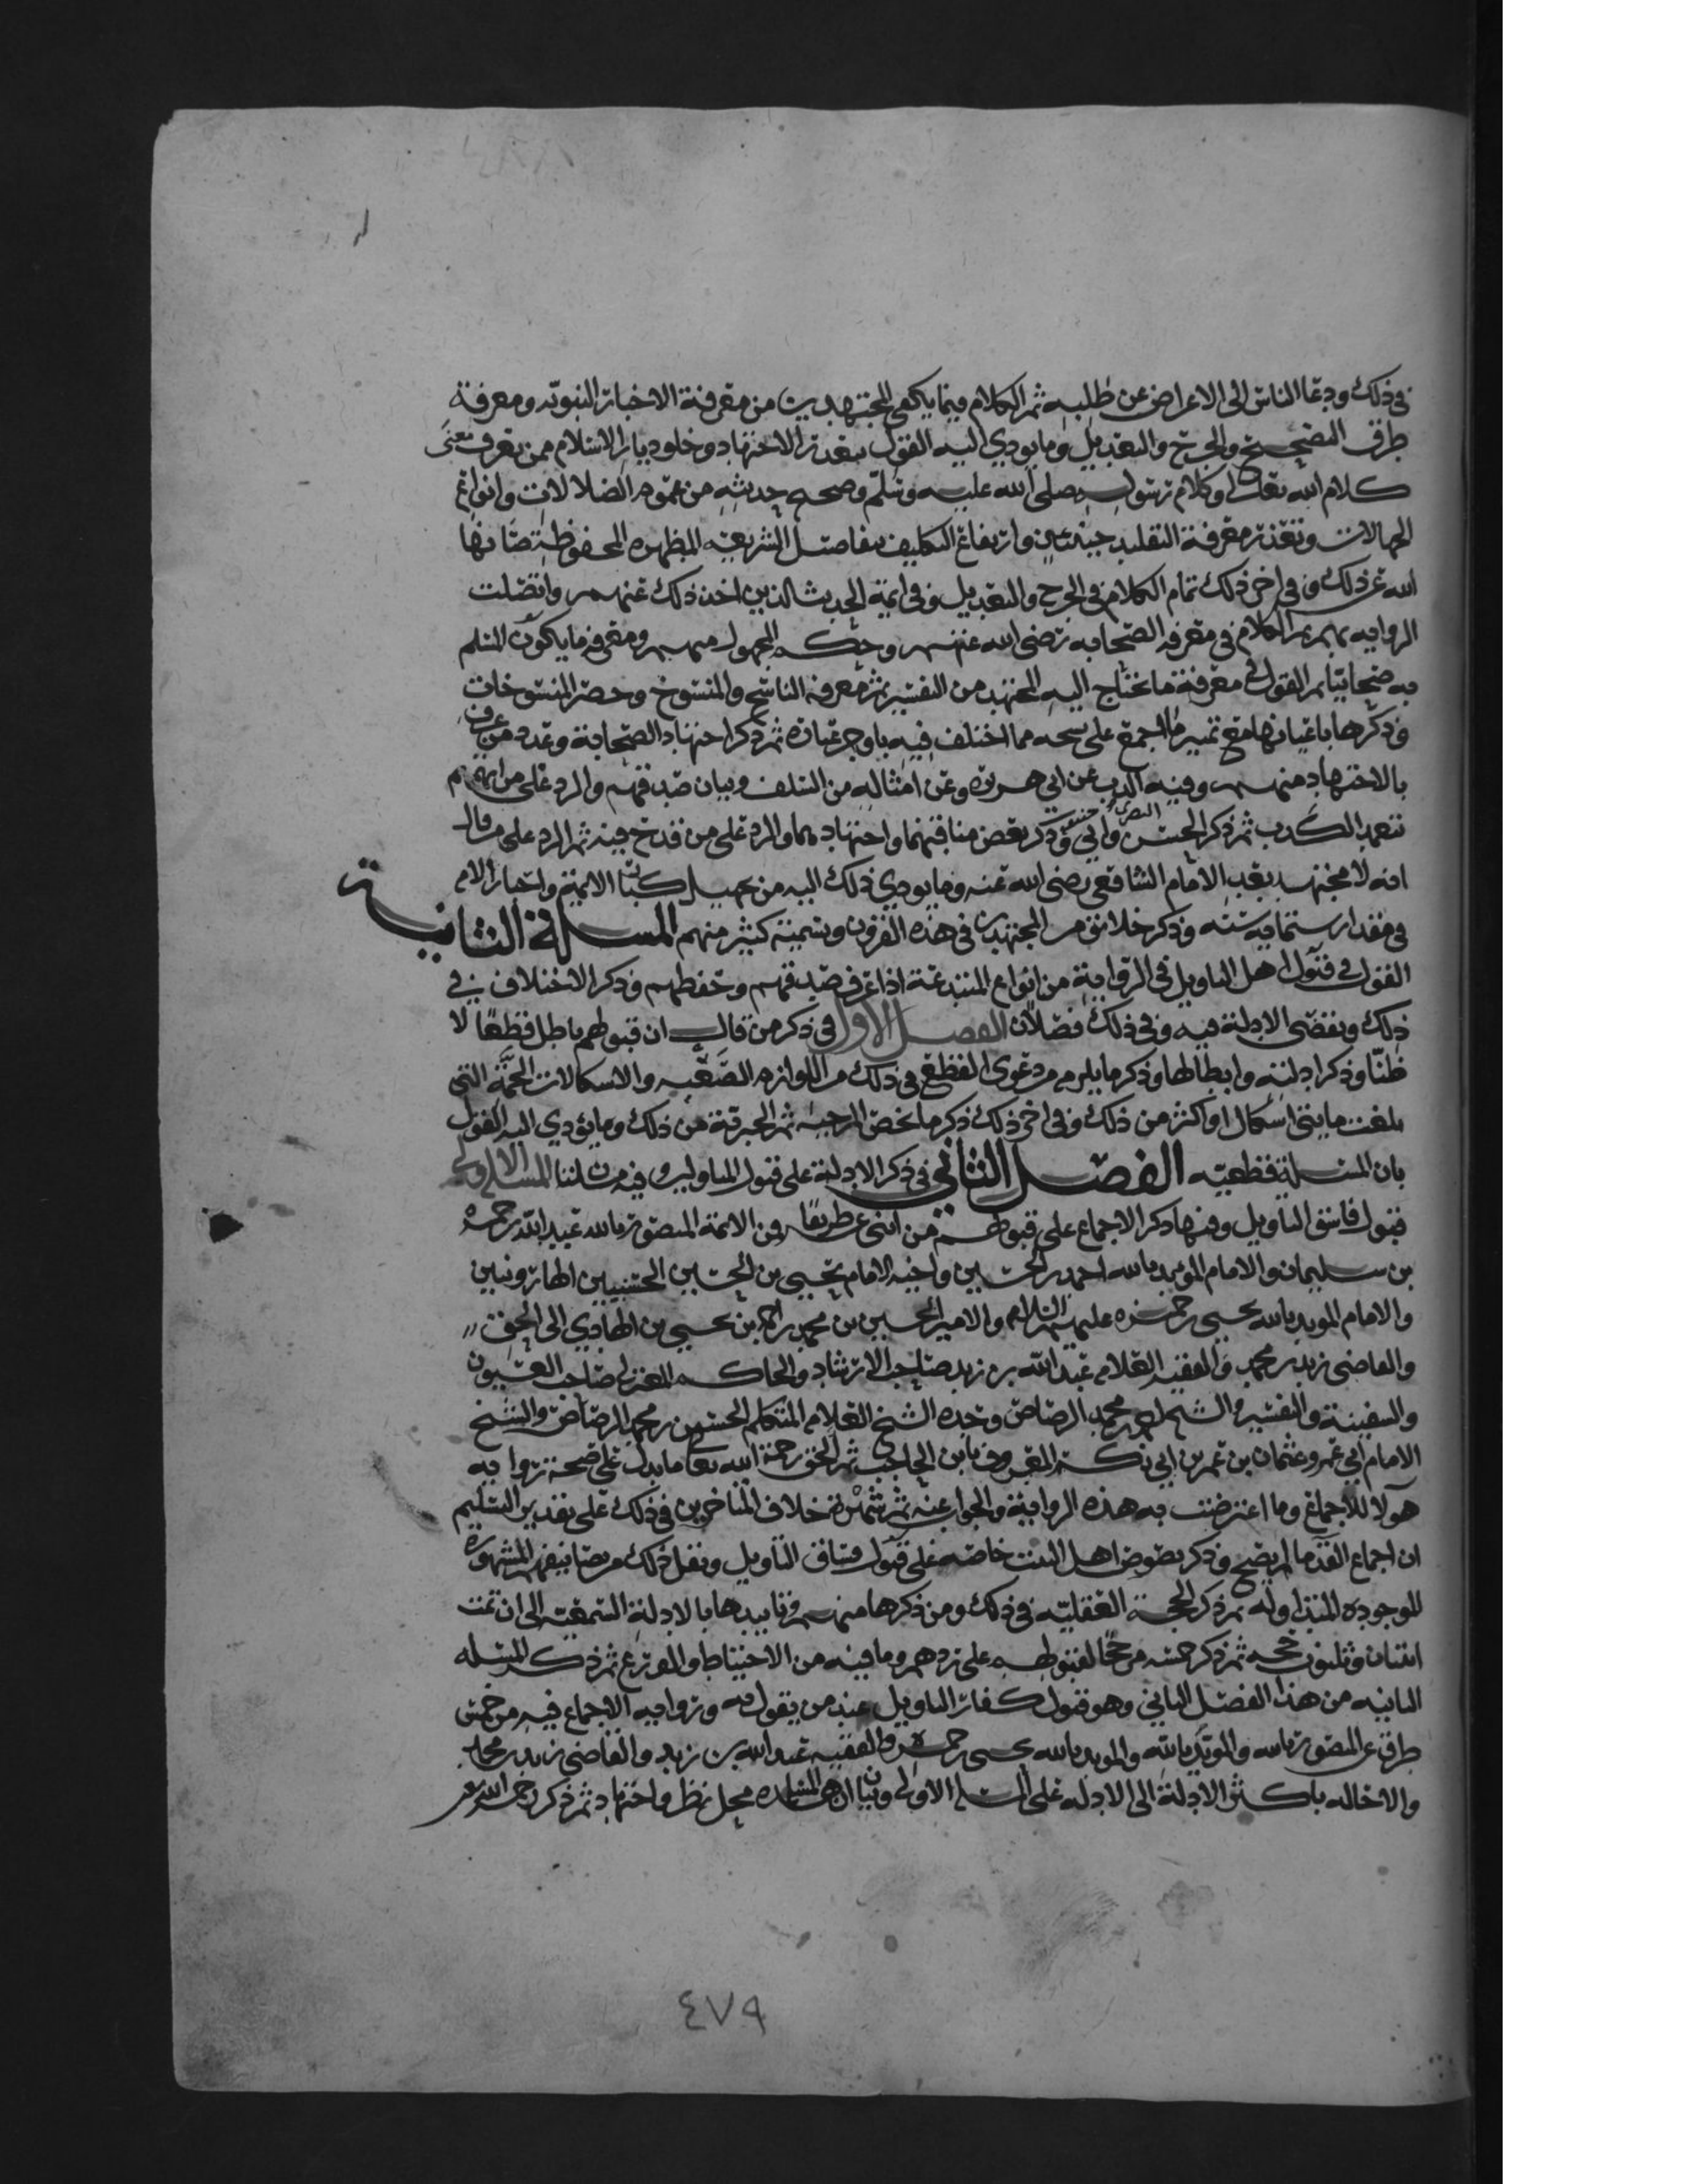 في ذلك ودعا الناس الى الاعراض عن طلبه ثم الكلام فيما يكفي المجتهدين من معرفة الاخبار النبويه ومعرفة
طرق التصحيح والجرح والتعديل وما يودي اليه القول بتعذر الاجتهاد وخلو ديار الاسلام ممن يعرف معنى
كلام الله تعالى او كلام رسوله صلى الله عليه وسلم وصحه حديثه من عموم الضلالات وانواع
الجهالات وتعذر معرفة التقليد حينئذ وارتفاع التكليف بتفاصيل الشريعه المطهره المحفوظة صانها
الله عن ذلك وفي اخر ذلك تمام الكلام في الجرح والتعديل وفي ايمة الحديث الذين اخذ ذلك عنهم واتصلت
الروايه بهم ثم الكلام في معرفه الصحابه رضي الله عنهم وحكم المجهول منهم ومعرفه ما يكون المسلم
به صحابيا ثم القول في معرفة ما يحتاج اليه المجتهد من التفسير ثم معرفه الناسخ والمنسوخ وحصر المنسوخات
وذكرها باعيانها مع تمييز ما اجمع على نسخه مما اختلف فيه باوجز عباره ثم ذكر اجتهاد الصحابة وعدد من عرف
بالاجتهاد منهم وفيه الذب عن ابي هريرة وعن امثاله من السلف وبيان صدقهم والرد على من اتهمهم
بتعمد الكذب ثم ذكر الحسن البصري وابي حنيفة وذكر بعض مناقبهما واجتهادهما والرد على من قدح فيه ثم الرد على من قال
انه لا مجتهد بعد الامام الشافعي رضي الله عنه وما يودي ذلك اليه من تجهيل كبار الايمة واحبار الامه
في مقدار ستمايه سنه وذكر خلائق من المجتهدين في هذه القرون وتسمية كثير منهم المسئلة الثانية
القول في قبول اهل التاويل في الرواية من انواع المبتدعة اذا عرف صدقهم وحفظهم وذكر الاختلاف في
ذلك وتقصي الادلة فيه وفي ذلك فصلان الفصل الاول في ذكر من قال ان قبولهم باطل قطعا لا
ظنا وذكر ادلته وابطالها وذكر ما يلزم من دعوى القطع في ذلك من اللوازم الصعبه والاشكالات الجمة التي
بلغت مايتي اشكال او اكثر من ذلك وفي اخر ذلك ذكر ما يخص المرجيه ثم الجبرية من ذلك وما يؤدي اليه القول
بان المسئلة قطعيه الفصل الثاني في ذكر الادلة على قبول المتاولين وفيه مسئلتان المسئلة الاولى
قبول فاسق التاويل وفيها ذكر الاجماع على قبولهم من اثنى عشر طريقا عن الائمة المنصور بالله عبد الله بن حمزه
بن سليمان والامام المويد بالله احمد بن الحسين واخيه الامام يحيى بن الحسين الحسنيين الهارونيين
والامام المويد بالله يحيى بن حمزه عليهم السلام والامير الحسين بن محمد بن احمد بن يحيى بن الهادي الى الحق
والقاضي زيد بن محمد والفقيه العلامه عبد الله بن زيد صاحب الارشاد والحاكم المعتزلي صاحب العيون
والسفينة والتفسير والشيخ احمد بن محمد الرصاص وجده الشيخ العلامه المتكلم الحسن بن محمد الرصاص والشيخ
الامام ابي عمرو عثمان بن عمر بن ابي بكر المعروف بابن الحاجب ثم الحق رحمه الله تعالى ما يدل على صحة روايه
هولا للاجماع وما اعترضت به هذه الرواية والجواب عنه ثم ثمرة خلاف المتاخرين في ذلك على تقدير التسليم
ان اجماع القدما لم يصح وذكر نصوص اهل البيت خاصه على قبول فساق التاويل ونقل ذلك من تصانيفهم المشهوره
الموجوده المتداوله ثم ذكر الحجة العقليه في ذلك ومن ذكرها منهم وتاييدها بالادلة السمعيه الى ان تمت
اثنتان وثلثون حجه ثم ذكر خمسه مرجحا لقبولهم على ردهم وما فيه من الاحتياط والورع ثم ذكر المسئله
الثانيه من هذا الفصل الثاني وهو قبول كفار التاويل عند من يقول به وروايه الاجماع فيه من خمس
طرق عن المنصور بالله والمويد بالله والمويد بالله يحيى بن حمزه والفقيه عبد الله بن زيد والقاضي زيد بن محمد
والاحاله باكثر الادلة الى الادله على المسئلة الاولى وبيان ان هذه المسئله محل نظر واجتهاد ثم ذكر رحمه الله
٤٧٩